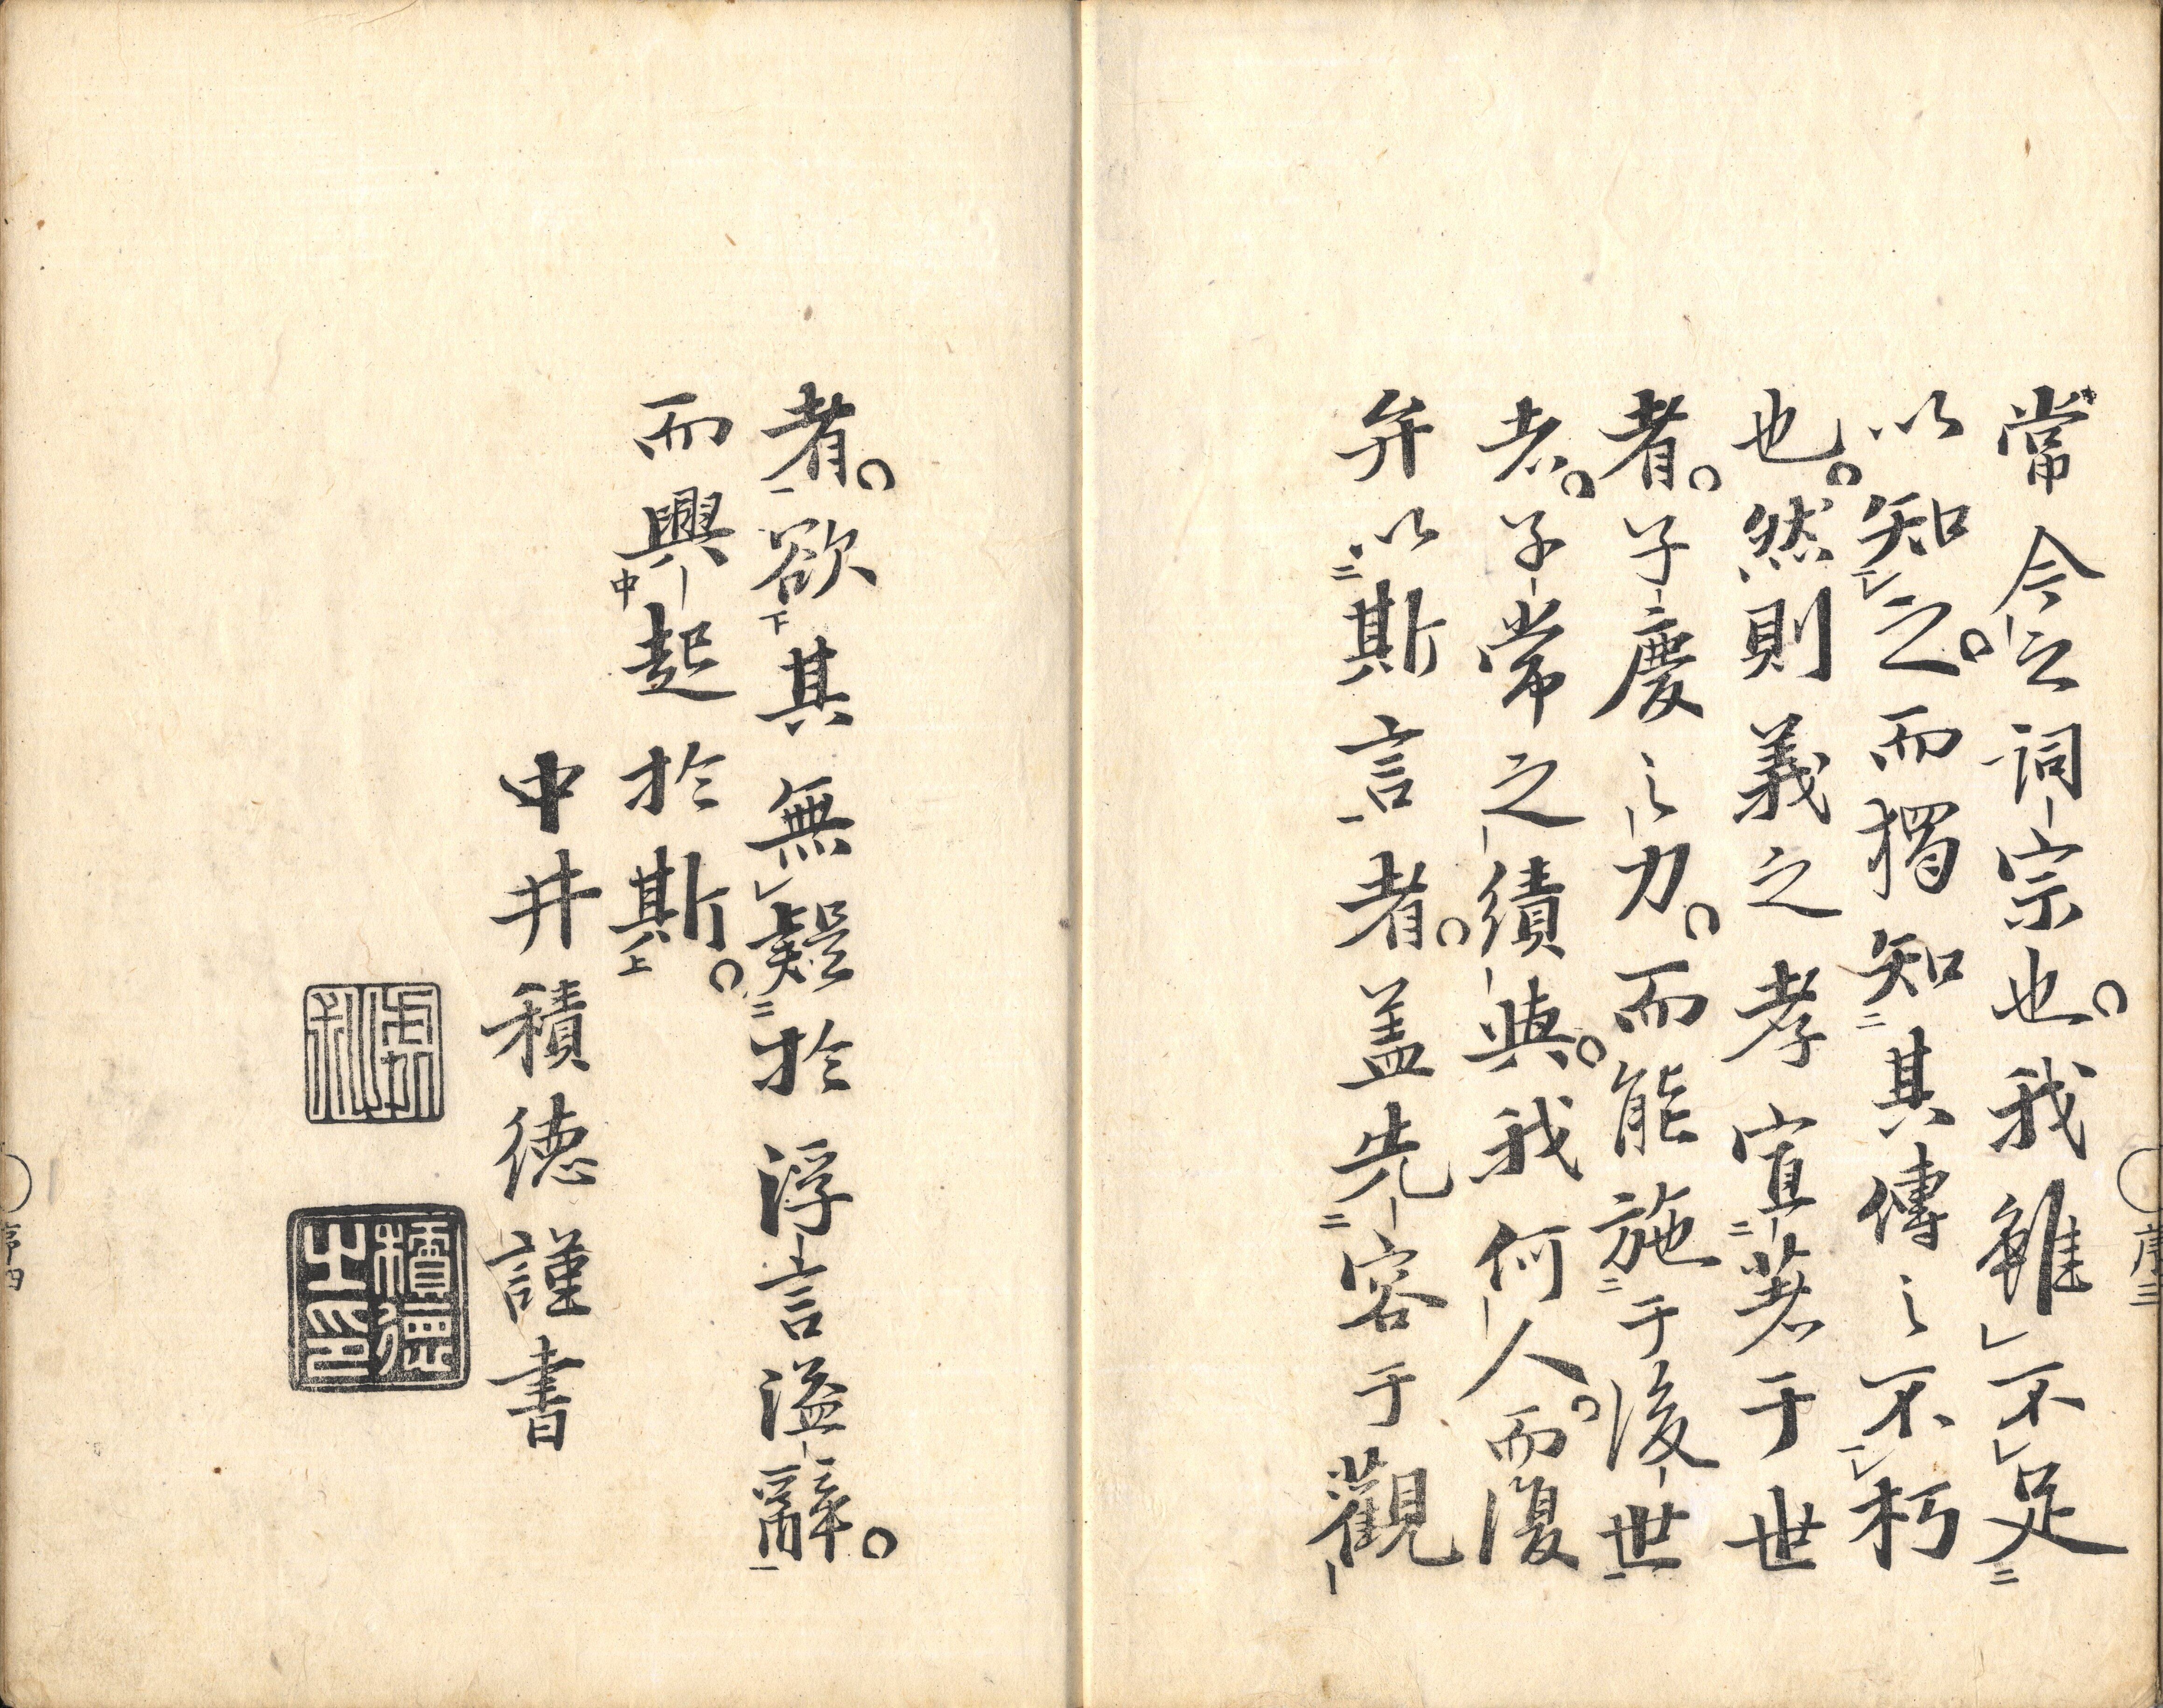 當今之詞宗也。我雖不足
以知之。而獨知其傳之不朽
也。然則義之孝宣著于世
者。子慶之力。而能施于後世
者。子常之績與。我何人。而復
弁以斯言者。盖先容于觀
者。欲其無疑於浮言溢辭。
而興起於斯。
中井積德謹書
積德之印
序三
序四